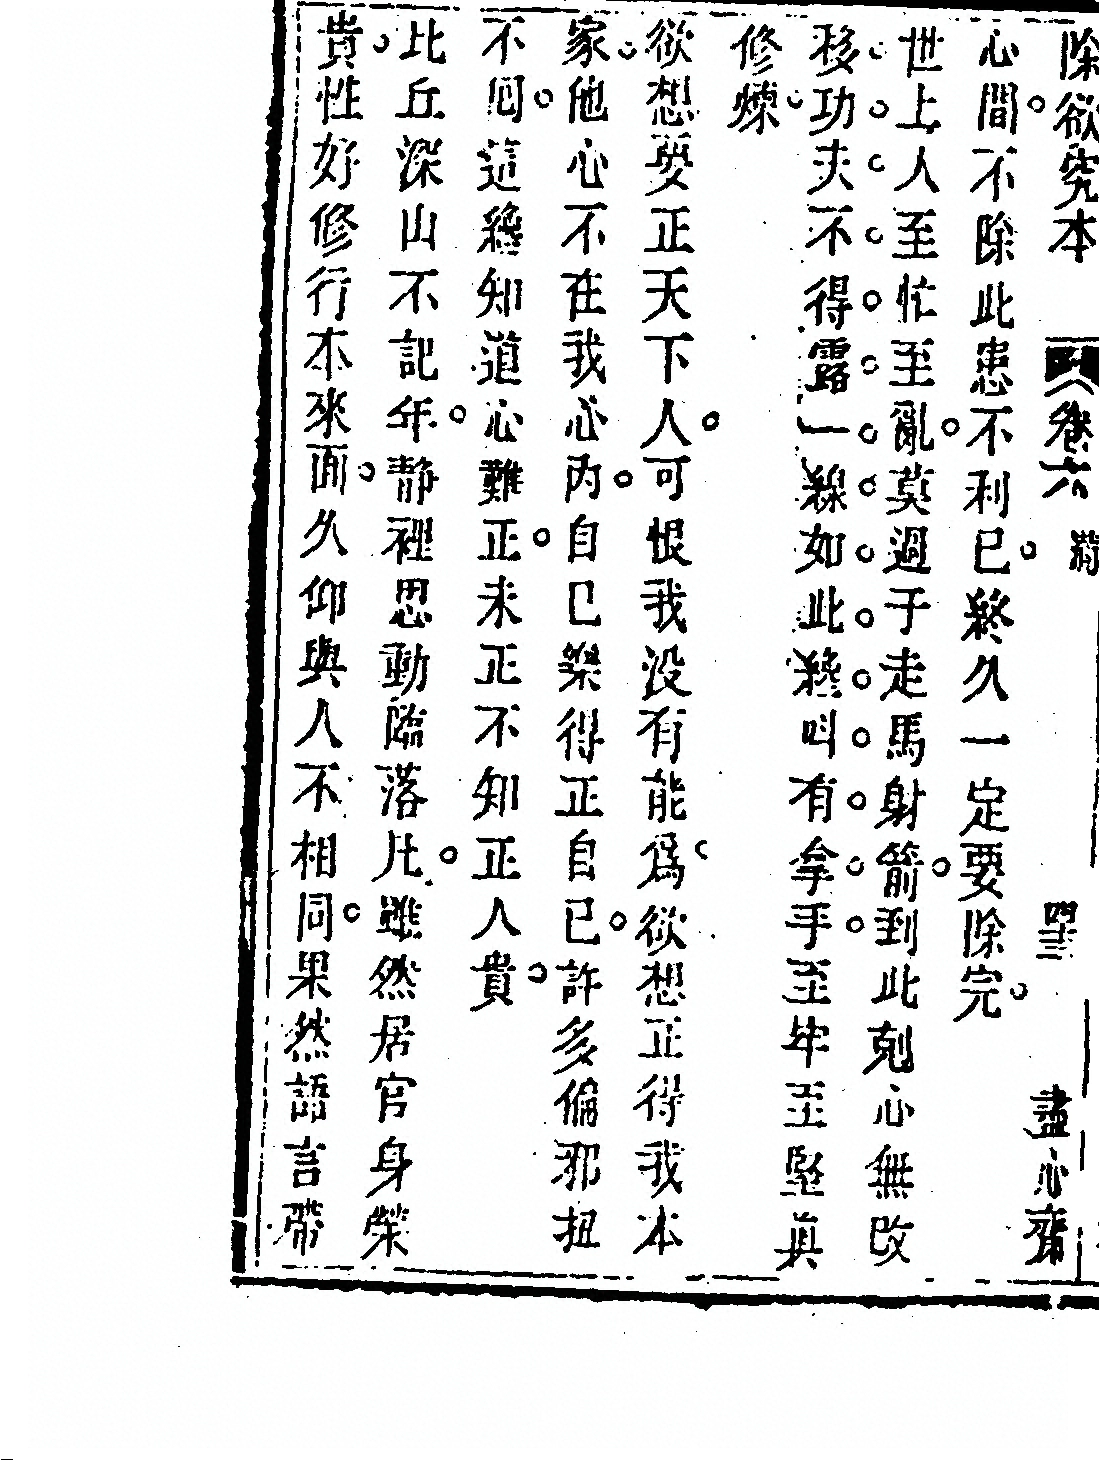 除欲究本 卷六 四十三 盡心齋
心間不除此患不利已終久一定要除完
世上人至忙至亂莫過于走馬射箭到此剋心無改
移功夫不得露一線如此纔叫有拿手至牢至堅真
修煉
欲想要正天下人可恨我没有能爲欲想正得我本
家他心不在我心内自已樂得正自已許多偏邪扭
不囘這纔知道心難正未正不知正人貴
比丘深山不記年静裡思動臨落凡雖然居官身榮
貴性好修行本來面久仰與人不相同果然語言帶